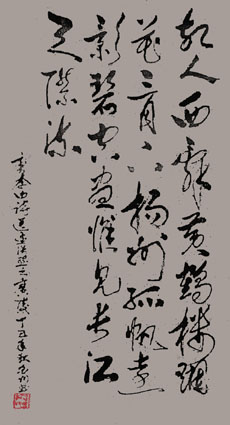 故人西辭黄鶴樓煙
花三月下揚州孤帆遠
影碧空盡惟見長江
天際流
李白詩送孟浩然之廣陵丁巳年秋